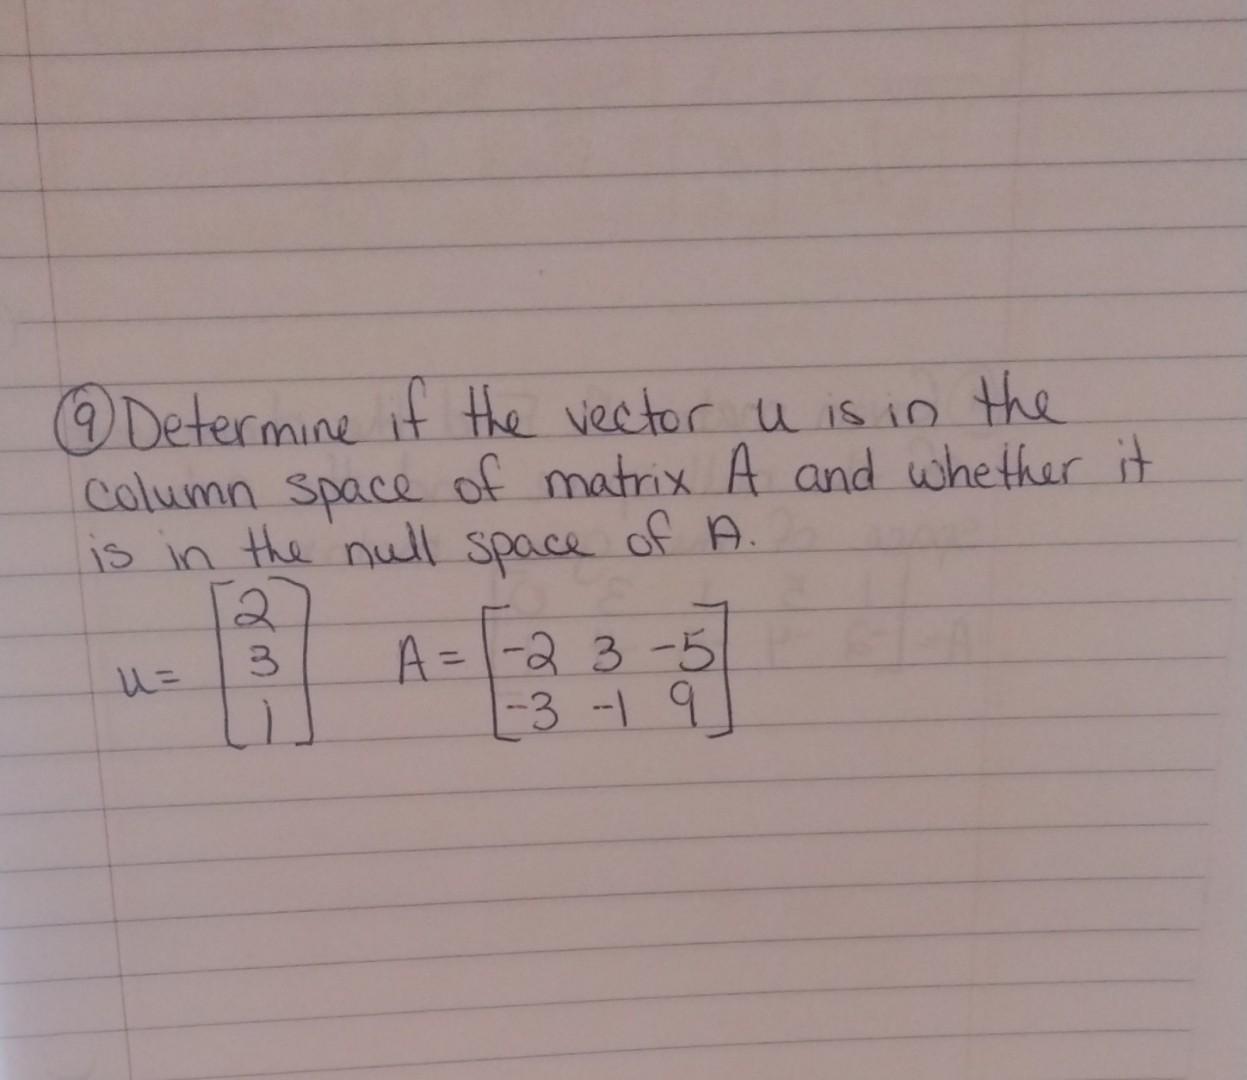 ⑨ Determine if the vector u is in the
column space of matrix A and whether it
is in the null space of A.
u = [2 3 1] A = [-2 3 -5
-3 -1 9]